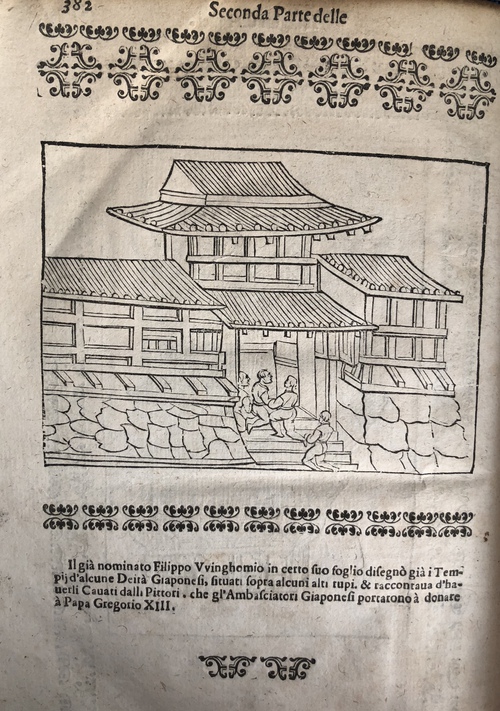 382
Seconda Parte delle
Il già nominato Filippo Vvinghemio in certo suo foglio disegnò già i Tem-
pij d'alcune Deità Giaponesi, situati sopra alcuni alti rupi. & raccontaua d'ha-
uerli Cauati dalli Pittori, che gl'Ambasciatori Giaponesi portarono à donare
à Papa Gregorio XIII.